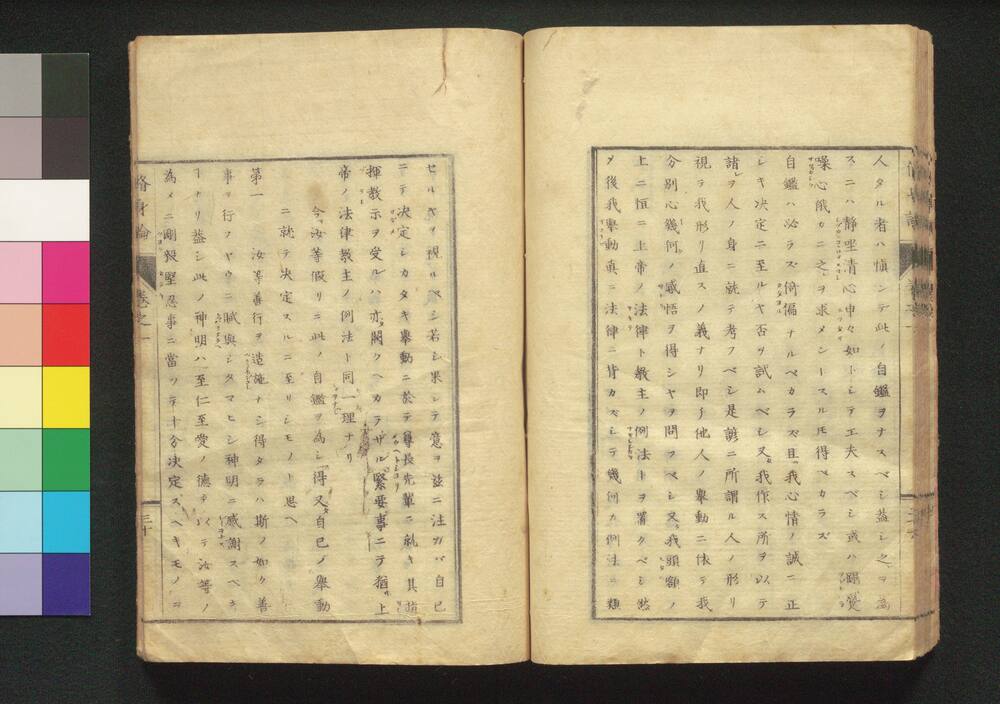 人タル者ハ愼ンテ此ノ自鑑ヲナスベシ蓋シ之ヲ為
スニハ靜坐清心申々如トシテ工夫スベシ或ハ
噪心俄カニ之ヲ求メントスルモ得ベカラズ
自鑑ハ必ラズ倚偏ナルベカラズ且我心情ノ誠ニ正
シキ决定ニ至ルヤ否ヲ試ムベシ又我作ス所ヲ以テ
諸ヲ人ノ身ニ就テ考フベシ是諺ニ所謂ル人ノ形リ
視ラ我形リ直スノ義ナリ即チ他人ノ擧動ニ依テ我
分別心幾何ノ感悟ヲ得シヤヲ問フベシ又我頭額ノ
上ニ恒ニ上帝ノ法律ト教主ノ例法トヲ置クベシ然
メ後我擧動眞ニ法律ニ背カズシテ幾何カ例法ニ類
セルヤヲ視ルベシ若シ果シテ意ヲ茲ニ注ガバ自己
ニテ决定シカタキ擧動ニ於テ尊長先輩ニ就キ其指
揮教示ヲ受ルハ亦闕クヘカラザル緊要事ニテ猶上
帝ノ法律教主ノ例法ト同一理ナリ
今汝等假リニ此ノ自鑑ヲ為シ得又自己ノ擧動
ニ就テ决定スルニ至リシモノト思ヘ
第一 汝等善行ヲ造施ナシ得タラハ斯ノ如ク善
事ヲ行フヤウニ賦與シタマヒシ神明ニ感謝スベキ
ナリ蓋シ此ノ神明ハ至仁至愛ノ德ヲ以テ汝等ノ
為メニ剛毅堅忍事ニ當ツテ十分决定スヘキモノニ
脩身論 卷之一 三十